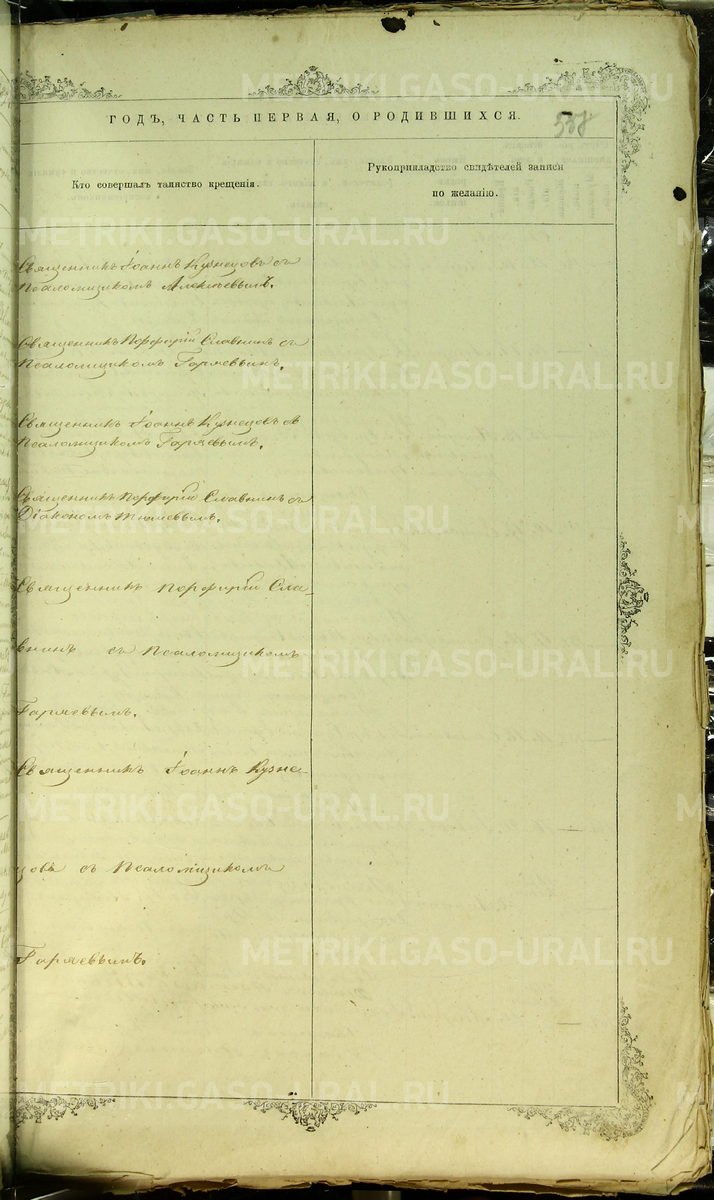 ГОДЪ, ЧАСТЬ ПЕРВАЯ, О РОДИВШИХСЯ.
538
Кто совершалъ таинство крещенія.
Рукоприкладство свидѣтелей записи
по желанію.
Священникъ Іоаннъ Кузнецовъ съ
Псаломщикомъ Алексѣевымъ.
Священникъ Порфирій Славнинъ съ
Псаломщикомъ Гаряевымъ.
Священникъ Іоаннъ Кузнецовъ съ
Псаломщикомъ Гаряевымъ.
Священникъ Порфирій Славнинъ съ
Діакономъ
Священникъ Порфирій Сла-
внинъ съ Псаломщикомъ
Гаряевымъ.
Священникъ Іоаннъ Кузне-
цовъ съ Псаломщикомъ
Гаряевымъ.
METRIKI.GASO-URAL.RU
METRIKI.GASO-URAL.RU
METRIKI.GASO-URAL.RU
METRIKI.GASO-URAL.RU
METRIKI.GASO-URAL.RU
METRIKI.GASO-URAL.RU
METRIKI.GASO-URAL.RU
METRIKI.GASO-URAL.RU